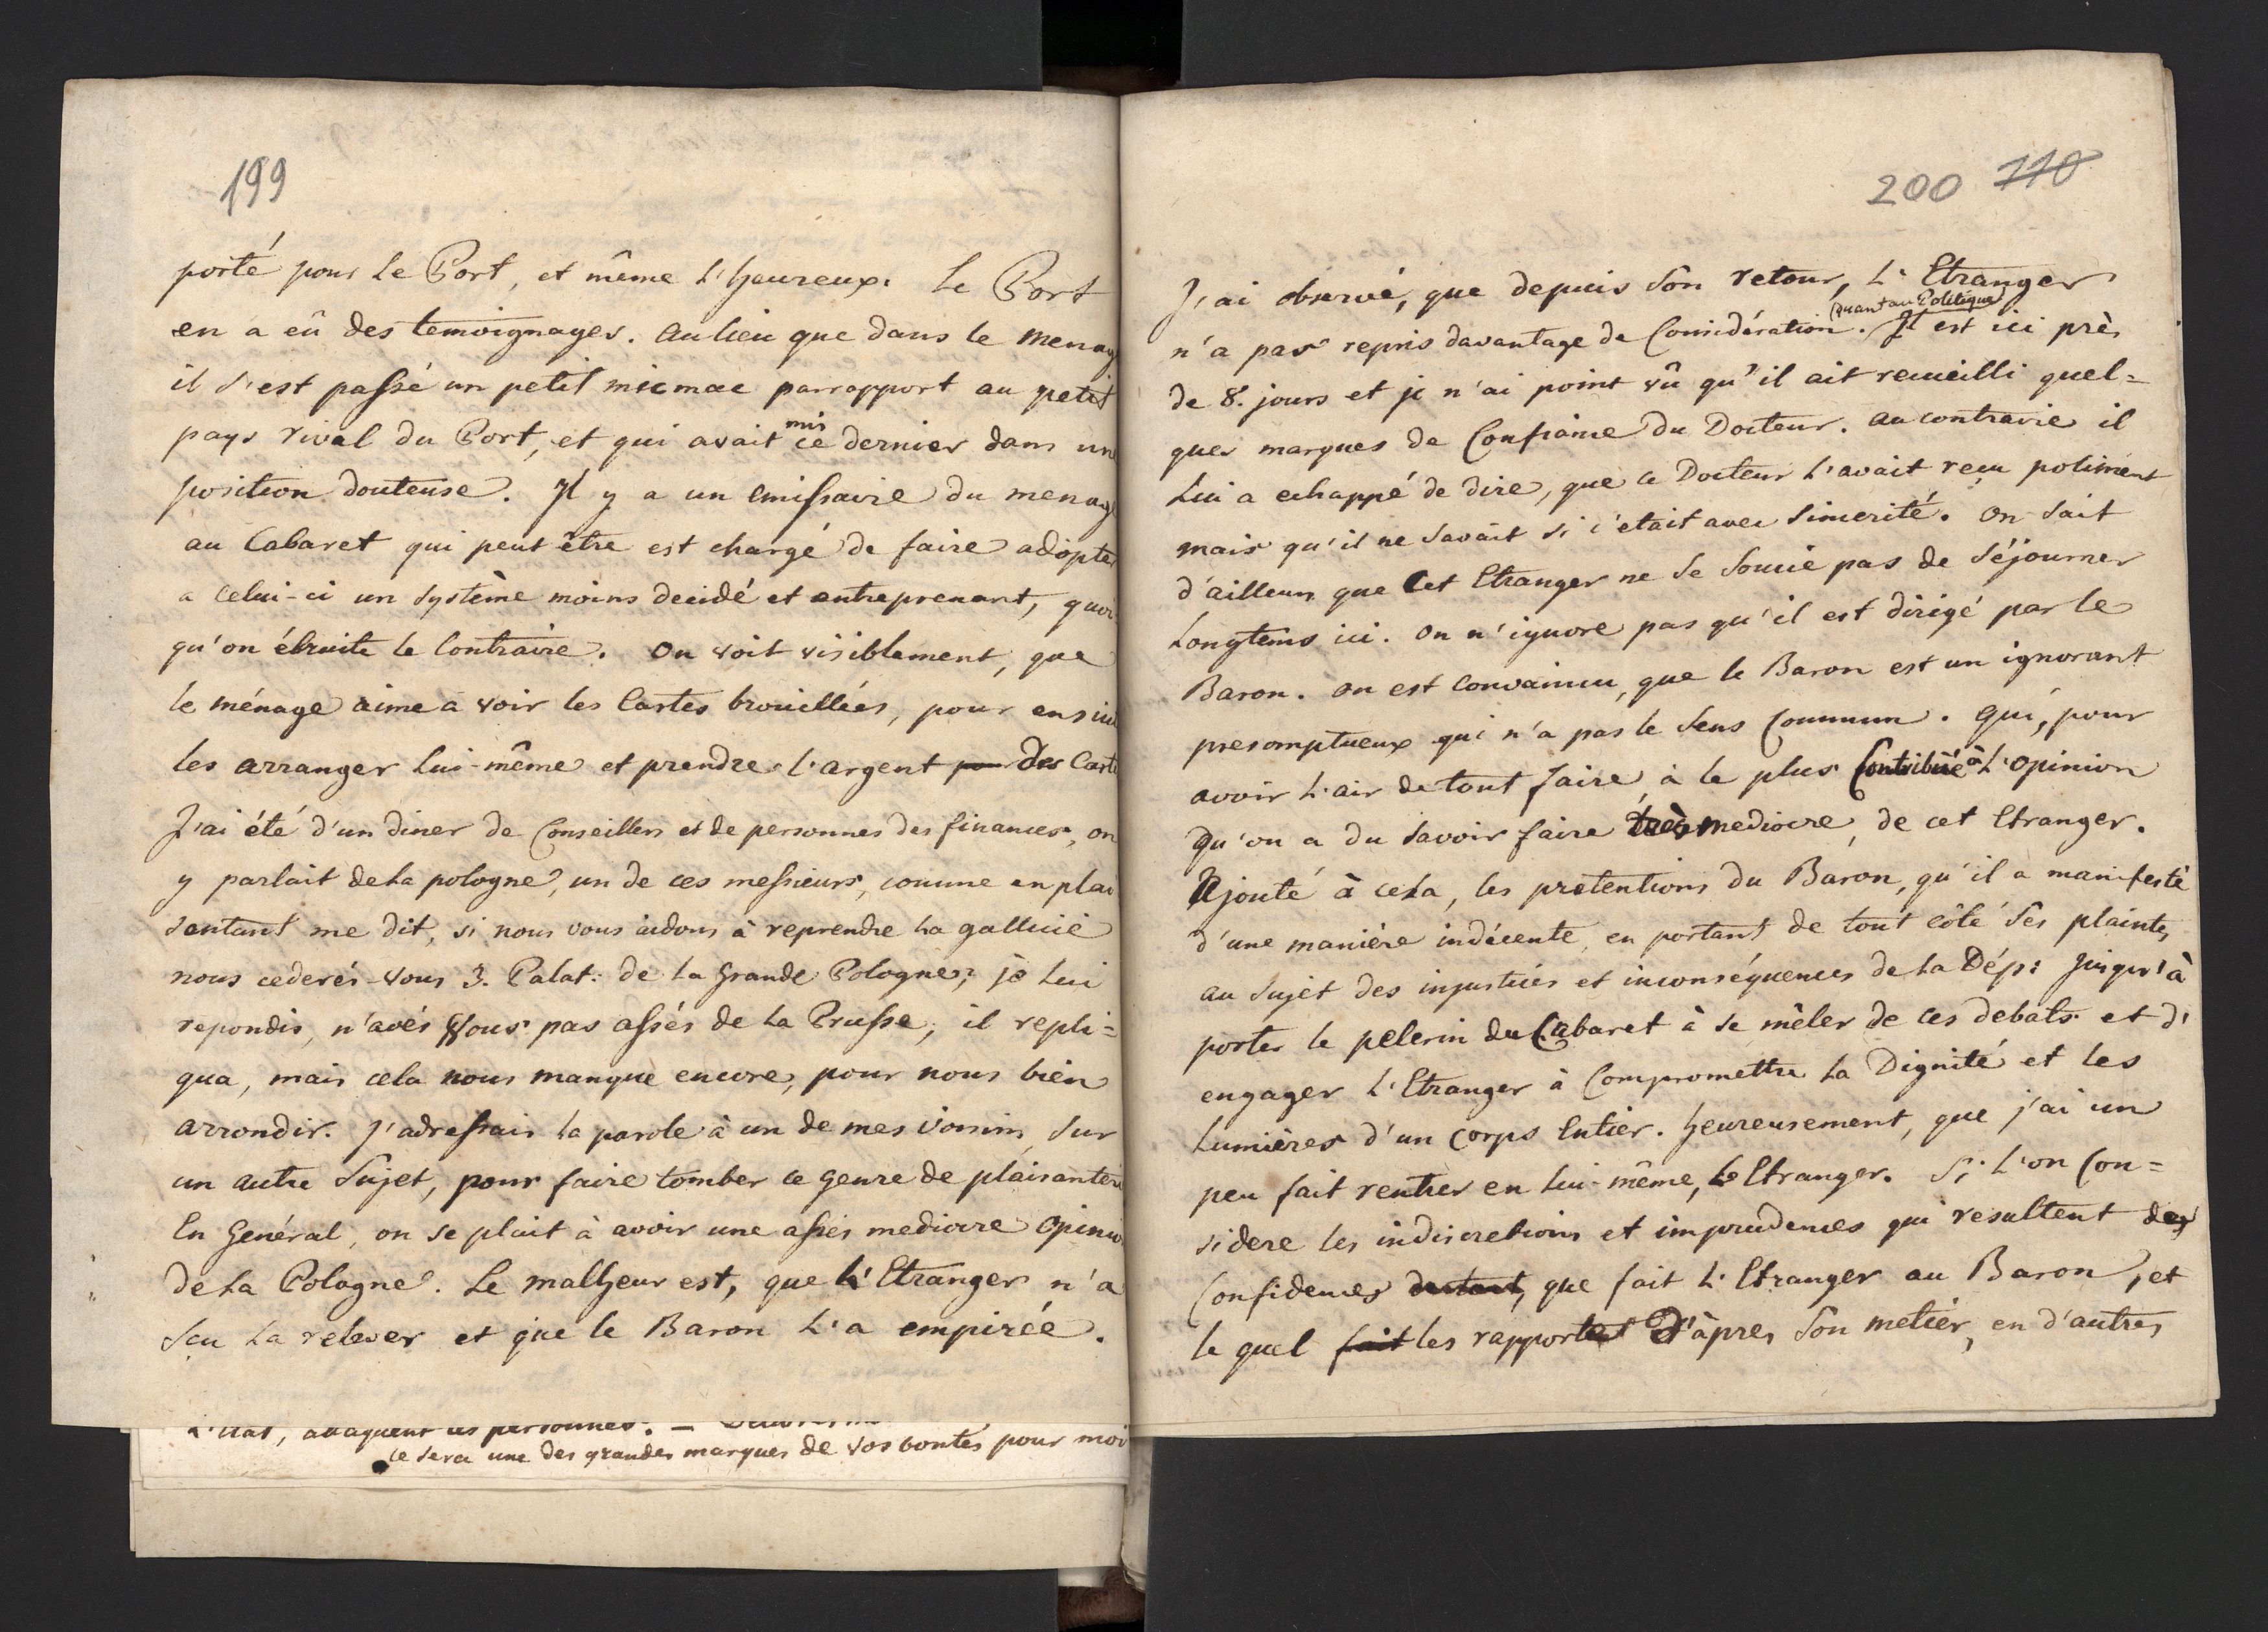 199
porté pour Le Port, et même L'heureux. Le Port
en a eû des temoignages. aulieu que dans le menag
il s'est passé un petit micmac parrapport au petit
pays rival du Port, et qui avait mis ce dernier dans un
position douteuse. Jl y a un emissaire du menag
au Cabaret qui peut être est chargé de faire adopter
a celui-ci un système moins decidé et entreprenant, quoi
qu'on ébruite le Contraire. On voit visiblement, que
le ménage aime à voir les Cartes brouillées, pour ensui
les arranger lui-même et prendre l'argent des Carte
J'ai été d'un diner de Conseillers et de personnes des finances, on
y parlait de la pologne, un de ces messieurs, comme en plai
santant me dit, si nous vous aidons à reprendre la gallicie
nous cederés-vous 3. Palat: de la grande Pologne; je lui
repondis, n'avés vous pas assés de la Prusse, il repli=
qua, mais cela nous manque encore, pour nous bien
arrondir. J'adressais la parole à un de mes voisins sur
un autre sujet, pour faire tomber ce genre de plaisanteri
En Général, on se plait à avoir une assés mediocre Opinio
de la Pologne. Le malheur est, que L'Etranger n'a
seu la relever et que le Baron L'a empirée.
ces personnes. —
ce sera une des grandes marques de vos bontés pour moi
200 110
J'ai observé, que depuis son retour, L'Etranger
n'a pas repris davantage de Considération quant au Politique. Jl est ici près
de 8. jours et je n'ai point vû qu'il ait recueilli quel=
ques marques de Confiance du Docteur. au contraire il
Lui a echappé de dire, que ce Docteur l'avait reçu poliment
mais qu'il ne savait si c'etait avec sincerité. On sait
d'ailleurs que Cet Etranger ne se soucie pas de séjourner
Longtems ici. On n'ignore pas qu'il est dirigé par le
Baron. on est Convaincu, que le Baron est un ignorant
presomptueux qui n'a pas le sens Commun. Qui, pour
avoir L'air de tout faire, à le plus Contribüé à L'opinion
qu'on a du savoir faire très mediocre, de cet Etranger.
Ajouté à cela, les pretentions du Baron, qu'il a manifesté
d'une manière indécente, en portant de tout côté ses plaintes
au sujet des injustices et inconséquences de la Dép: jusqu'à
porter le pelerin du Cabaret à se mêler de ces debats et d'
engager L'Etranger à Compromettre la Dignité et les
Lumières d'un Corps Entier. heureusement, que j'ai un
peu fait rentrer en lui-même, L'Etranger. Si L'on Con=
sidere les indiscretions et imprudences qui resultent des
Confidences que fait L'Etranger au Baron, et
le quel fait les rapporte d'àpres son metier, en d'autres